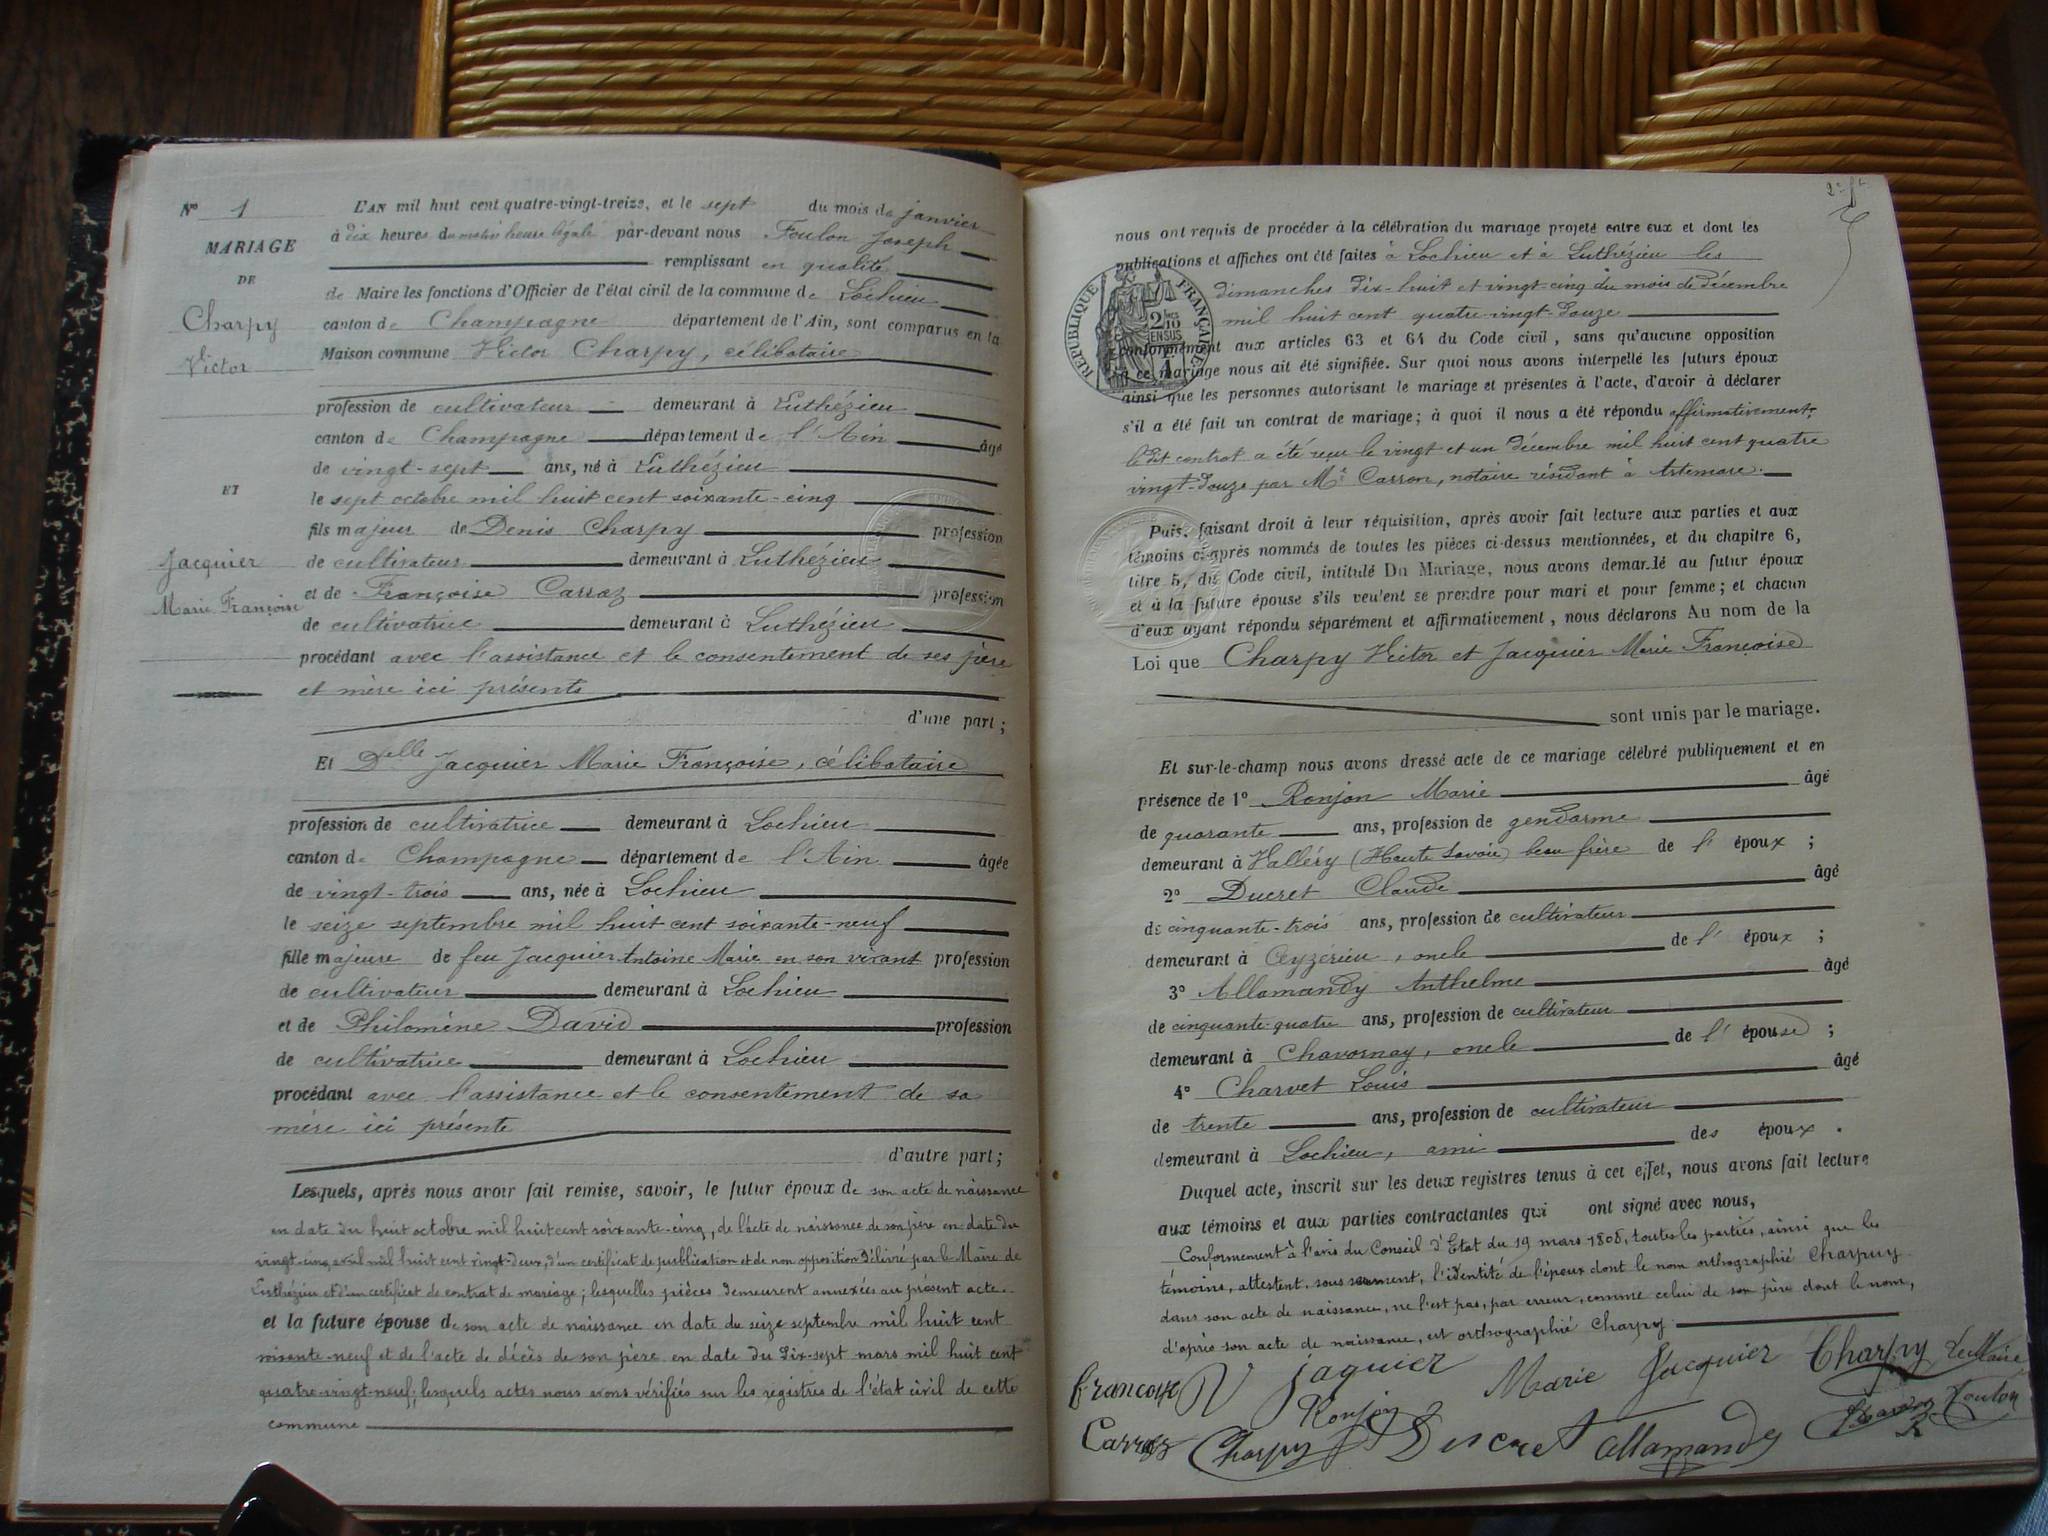 N° 1
MARIAGE
DE
Charpy
Victor
ET
Jacquier
Marie Françoise
L'AN mil huit cent quatre-vingt-treize, et le sept du mois de janvier
à dix heures du matin heure légale par-devant nous Foulon Joseph
remplissant en qualité
de Maire les fonctions d'Officier de l'état civil de la commune de Lochieu
canton de Champagne département de l'Ain, sont comparus en la
Maison commune Victor Charpy, célibataire
profession de cultivateur demeurant à Luthézieu
canton de Champagne département de l'Ain âgé
de vingt-sept ans, né à Luthézieu
le sept octobre mil huit cent soixante-cinq
fils majeur de Denis Charpy profession
de cultivateur demeurant à Luthézieu
et de Françoise Carraz profession
de cultivatrice demeurant à Luthézieu
procédant avec l'assistance et le consentement de ses père
et mère ici présents
d'une part ;
Et Delle Jacquier Marie Françoise, célibataire
profession de cultivatrice demeurant à Lochieu
canton de Champagne département de l'Ain âgée
de vingt-trois ans, née à Lochieu
le seize septembre mil huit cent soixante-neuf
fille majeure de feu Jacquier Antoine Marie en son vivant profession
de cultivateur demeurant à Lochieu
et de Philomène David profession
de cultivatrice demeurant à Lochieu
procédant avec l'assistance et le consentement de sa
mère ici présente
d'autre part ;
Lesquels, après nous avoir fait remise, savoir, le futur époux de son acte de naissance
en date du huit octobre mil huit cent soixante-cinq, de l'acte de naissance de son père en date du
vingt-cinq avril mil huit cent vingt-deux, d'un certificat de publication et de non opposition délivré par le Maire de
Luthézieu et d'un certificat de contrat de mariage ; lesquelles pièces demeurent annexées au présent acte.
et la future épouse de son acte de naissance en date du seize septembre mil huit cent
soixante-neuf et de l'acte de décès de son père en date du dix-sept mars mil huit cent
quatre-vingt-neuf ; lesquels actes nous avons vérifiés sur les registres de l'état civil de cette
commune
nous ont requis de procéder à la célébration du mariage projeté entre eux et dont les
publications et affiches ont été faites à Lochieu et à Luthézieu les
dimanches dix-huit et vingt-cinq du mois de décembre
mil huit cent quatre-vingt-douze
RÉPUBLIQUE FRANÇAISE
conformément aux articles 63 et 64 du Code civil, sans qu'aucune opposition
à ce mariage nous ait été signifiée. Sur quoi nous avons interpellé les futurs époux
ainsi que les personnes autorisant le mariage et présentes à l'acte, d'avoir à déclarer
s'il a été fait un contrat de mariage ; à quoi il nous a été répondu affirmativement
le dit contrat a été reçu le vingt et un décembre mil huit cent quatre
vingt-douze par Me Carron, notaire résidant à Artemare.
Puis, faisant droit à leur réquisition, après avoir fait lecture aux parties et aux
témoins ci-après nommés de toutes les pièces ci-dessus mentionnées, et du chapitre 6,
titre 5, du Code civil, intitulé Du Mariage, nous avons demandé au futur époux
et à la future épouse s'ils veulent se prendre pour mari et pour femme ; et chacun
d'eux ayant répondu séparément et affirmativement, nous déclarons Au nom de la
Loi que Charpy Victor et Jacquier Marie Françoise
sont unis par le mariage.
Et sur-le-champ nous avons dressé acte de ce mariage célébré publiquement et en
présence de 1° Ronjon Marie âgé
de quarante ans, profession de gendarme
demeurant à Valléry (Haute Savoie) beau frère de l'époux ;
2° Ducret Claude âgé
de cinquante-trois ans, profession de cultivateur
demeurant à Ceyzérieu, oncle de l'époux ;
3° Allamandy Anthelme âgé
de cinquante-quatre ans, profession de cultivateur
demeurant à Chavornay, oncle de l'épouse ;
4° Charvet Louis âgé
de trente ans, profession de cultivateur
demeurant à Lochieu, ami des époux.
Duquel acte, inscrit sur les deux registres tenus à cet effet, nous avons fait lecture
aux témoins et aux parties contractantes qui ont signé avec nous,
Conformement à l'avis du Conseil d'Etat du 19 mars 1808, toutes les parties, ainsi que les
témoins, attestent, sous serment, l'identité de l'époux dont le nom orthographié Charpuy
dans son acte de naissance, ne l'est pas, par erreur, comme celui de son père dont le nom,
d'après son acte de naissance, est orthographié Charpy.
francoise V jaquier Marie Jacquier Charpy Le Maire
Carraz Ronjon Charpy Ducret allamandy Foulon